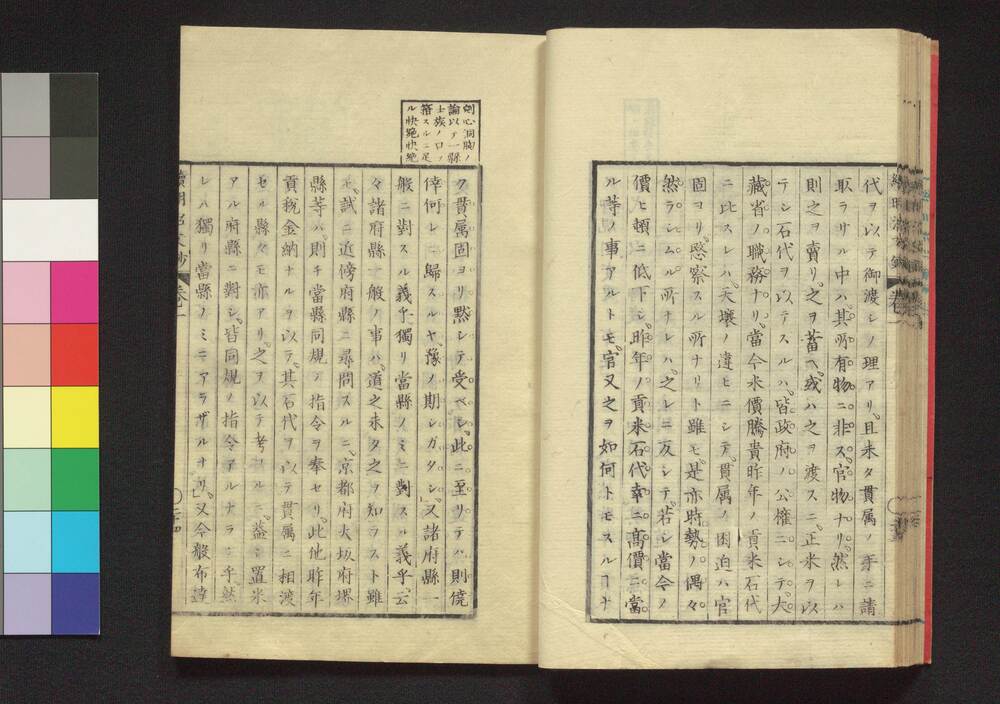 代ヲ以テ御渡シノ理アリ。且未タ貫属ノ手ニ請
取ラサル中ハ。其所有物ニ非ス。官物ナリ。然レハ
則之ヲ賣リ。之ヲ蓄ヘ。或ハ之ヲ渡スニ。正米ヲ以
テシ石代ヲ以テスルハ。皆政府ノ公権ニシテ。大
藏省ノ職務ナリ。當今米價騰貴昨年ノ貢米石代
ニ比スレハ。天壌ノ違ヒニシテ。貫属ノ困迫ハ官
固ヨリ愍察スル所ナリト雖モ。是亦時勢ノ偶々
然ラシムル所ナレハ。之レニ反シテ。若シ當今ノ
價ヒ頓ニ低下シ。昨年ノ貢米石代幸ニ髙價ニ當
ル等ノ事アルトモ。官又之ヲ如何トモスルヿナ
卷一
剖心洞腸ノ
論以テ一縣
士族ノロヲ
箝スルニ足
ル快絶快絶
ク貫属固ヨリ黙シテ受ベシ。此ニ至リテハ則僥
倖何レニ歸スルヤ。豫ノ期シガタシ。」又諸府縣一
般ニ對スル義乎。獨リ當縣ノミニ對スル義乎。云
々諸府縣一般ノ事ハ。道之未タ之ヲ知ラスト雖
モ。試ニ近傍府縣ニ尋問スルニ。京都府大坂府堺
縣等ハ。則チ當縣同規ノ指令ヲ奉セリ。此他昨年
貢税金納ナルヲ以テ。其石代ヲ以テ貫属ニ相渡
セル縣々モ亦アリ。之ヲ以テ考フルニ。蓋シ置米
アル府縣ニ對シ。皆同規ノ指令アルナラン乎。然
レハ獨リ當縣ノミニアラザルナリ。」又今般布達
卷一